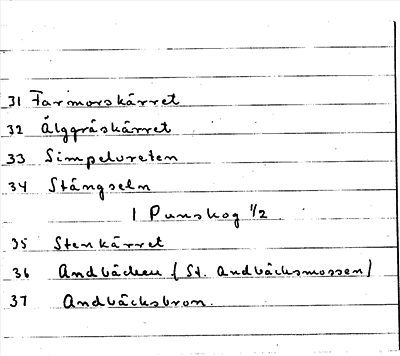 31 Farmorskärret
32 Älggräskärret
33 Simpelvreten
34 Stångseln
I Punskog 1/2
35 Stenkärret
36 Andbäcken (St. Andbäcksmossen)
37 Andbäcksbron.